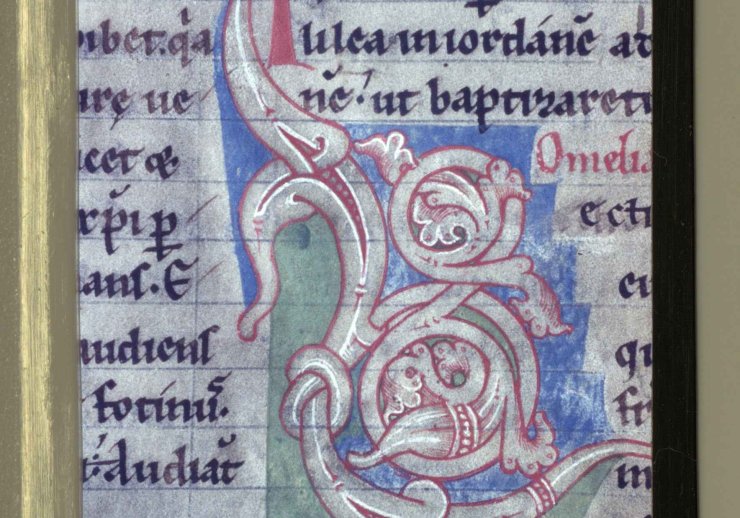 ibet. q̃a
ure ue
cet &
rp̃i ꝑ
ans. E
audiens
fotinuˢ.
t: Audiat̃
lilea in iordanē at
nē. ut baptizareti
Omelia
ecti
ei
qu
fr
in